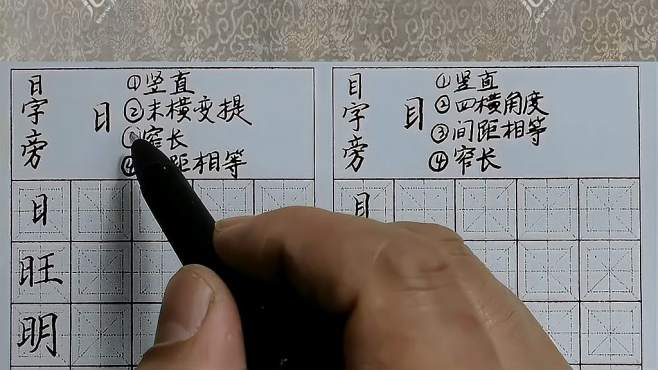 日字旁
日
①竖直
②末横变提
窄长
④距相等
日
旺
明
目字旁
目
①竖直
②四横角度
③间距相等
④窄长
目